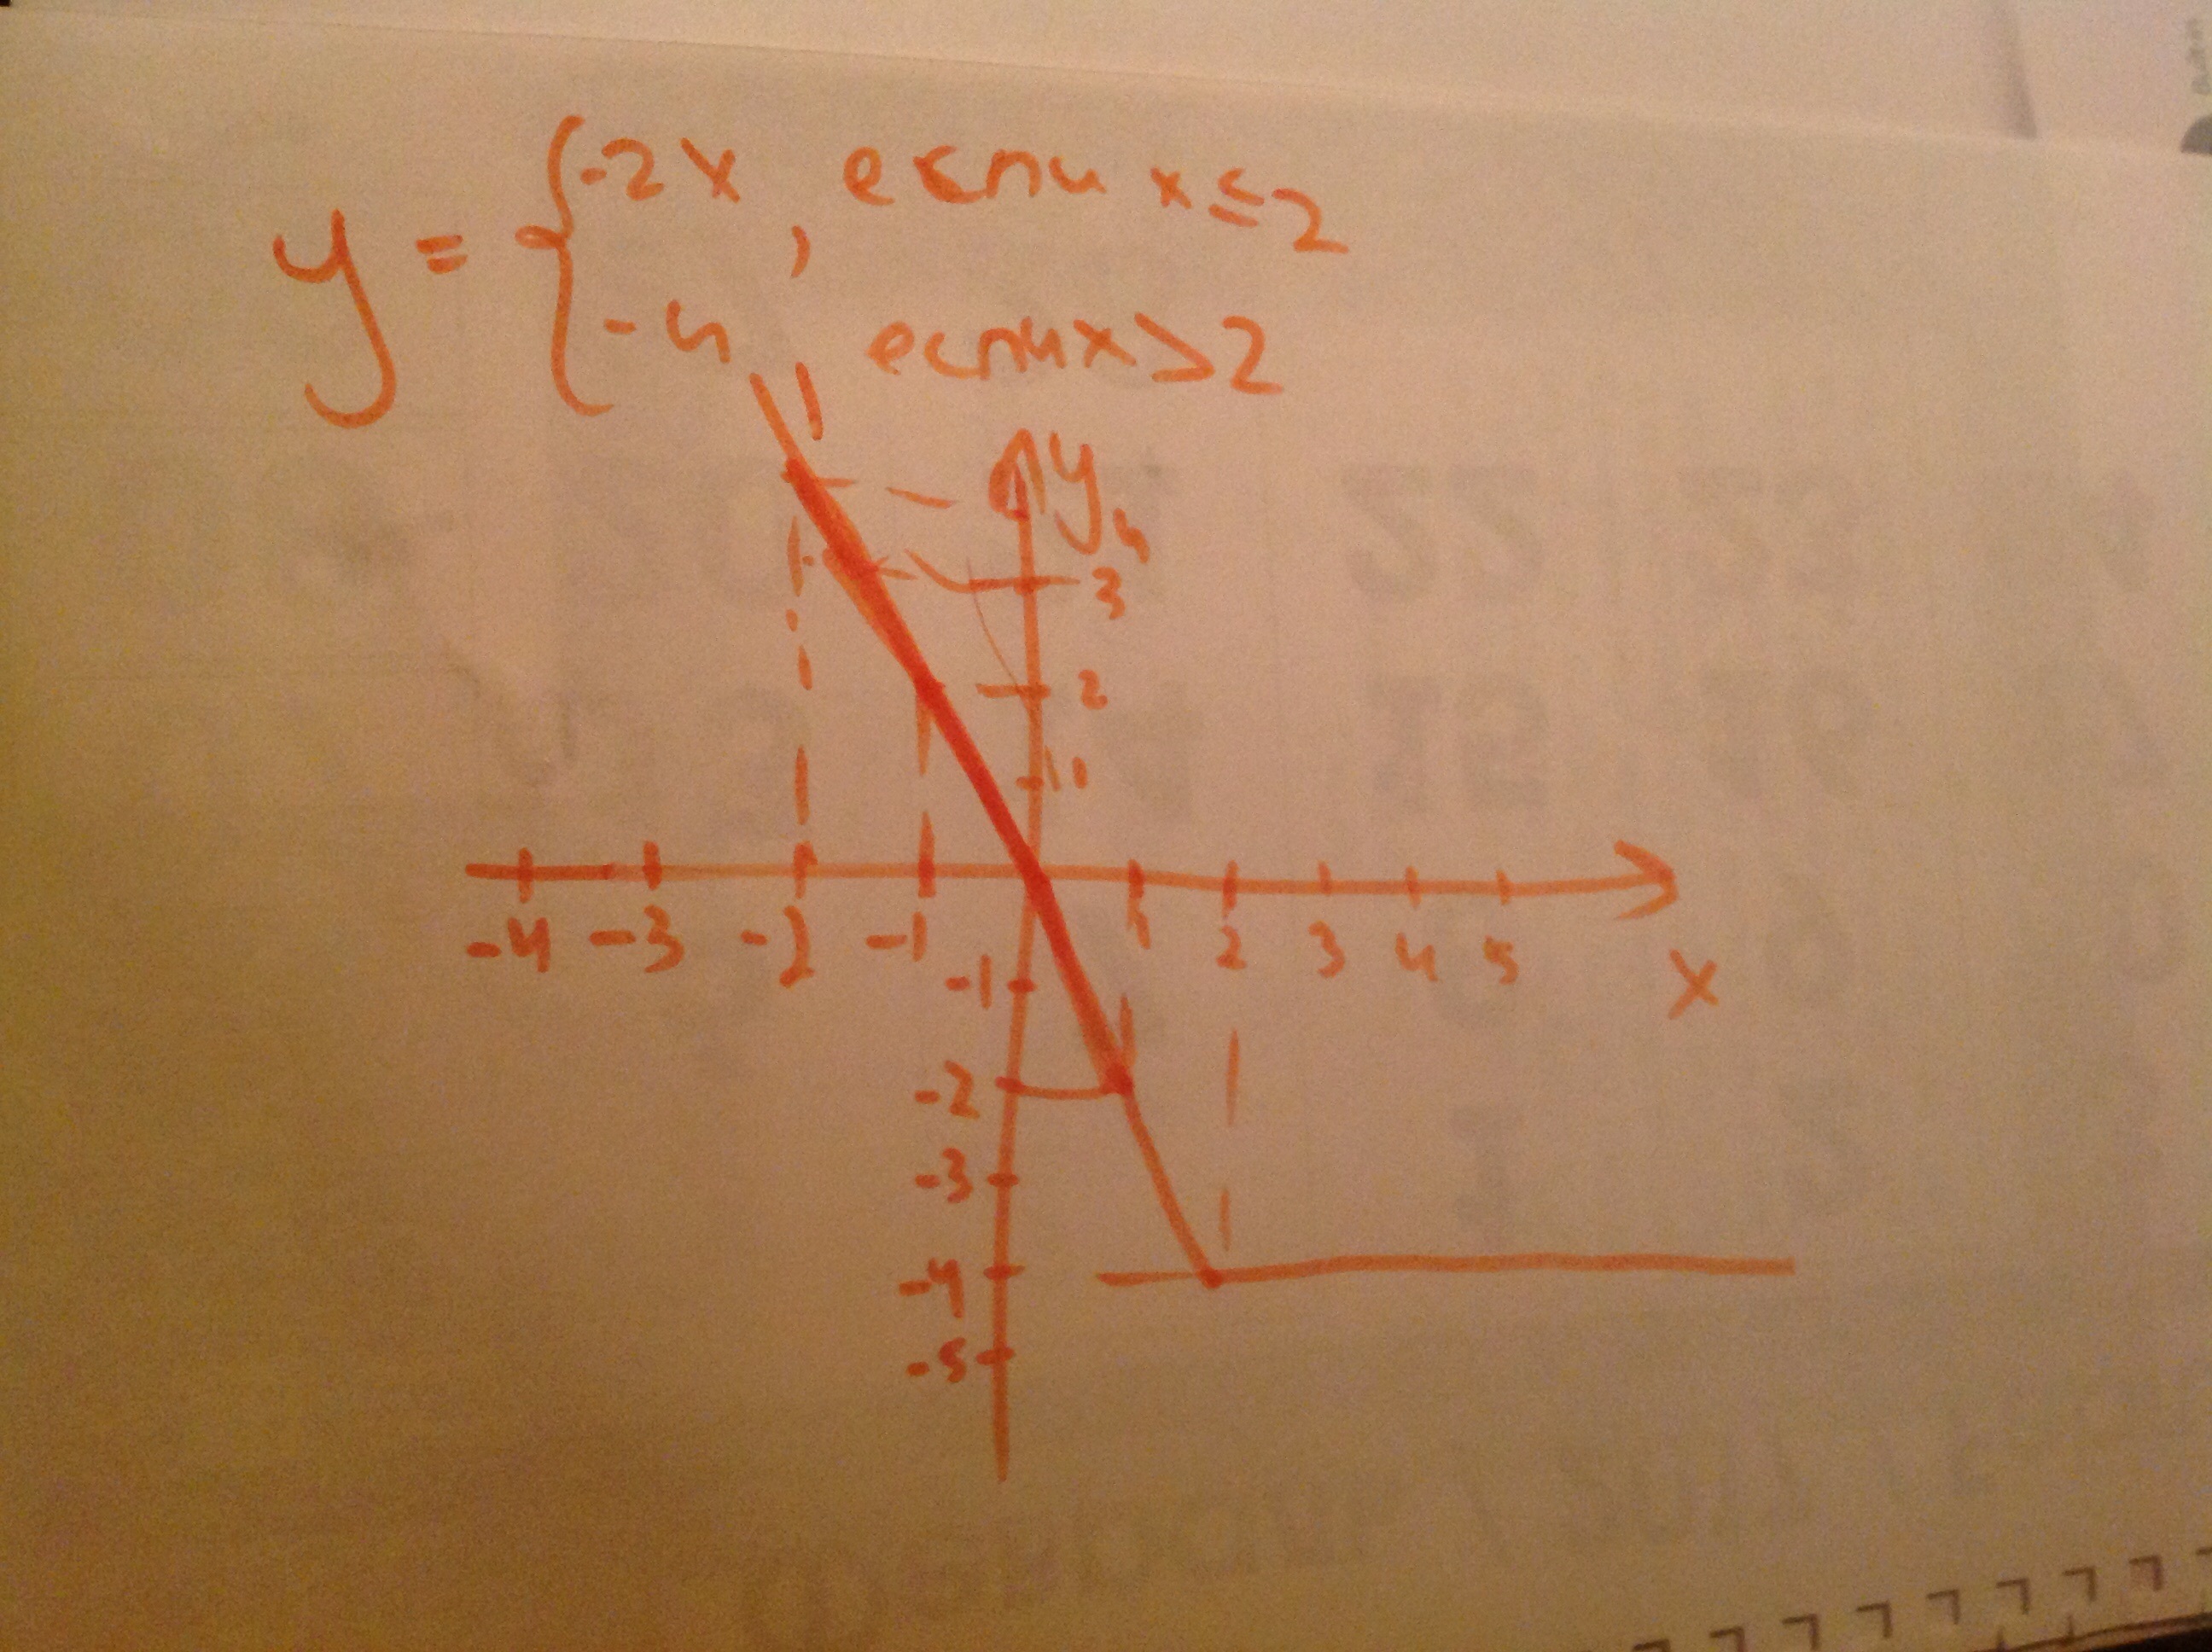 y = { -2x , если x ≤ 2
-4 , если x > 2
y
4
3
2
1
-4 -3 -2 -1 1 2 3 4 5
x
-1
-2
-3
-4
-5